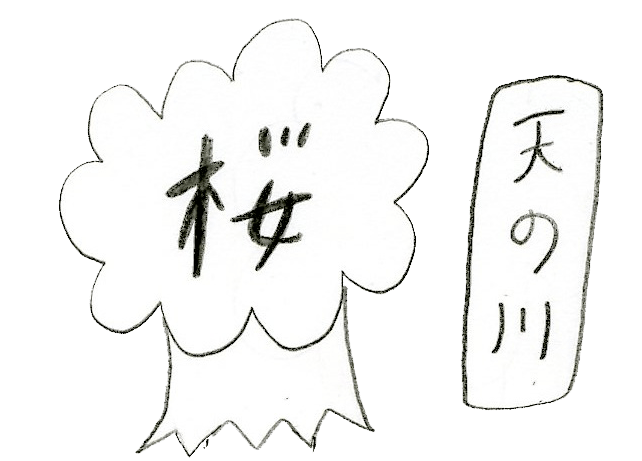 桜
天の川